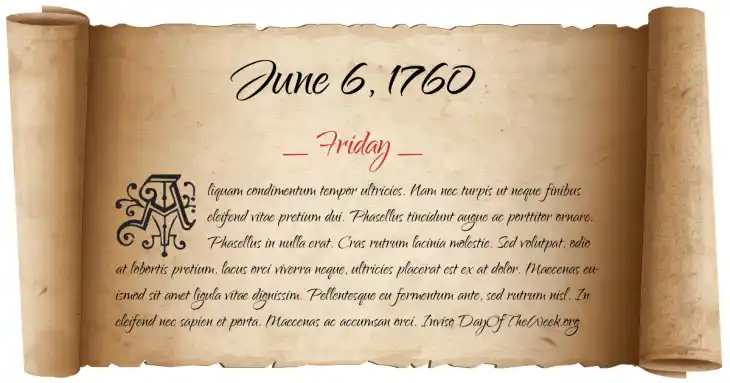 June 6, 1760
_ Friday _
Aliquam condimentum tempor ultricies. Nam nec turpis ut neque finibus
eleifend vitae pretium dui. Phasellus tincidunt augue ac porttitor ornare.
Phasellus in nulla erat. Cras rutrum lacinia molestie. Sed volutpat, odio
at lobortis pretium, lacus orci viverra neque, ultricies placerat est ex at dolor. Maecenas eu-
ismod sit amet ligula vitae dignissim. Pellentesque eu fermentum ante, sed rutrum nisl. In
eleifend nec sapien et porta. Maecenas ac accumsan orci. Inviso DayOfTheWeek.org